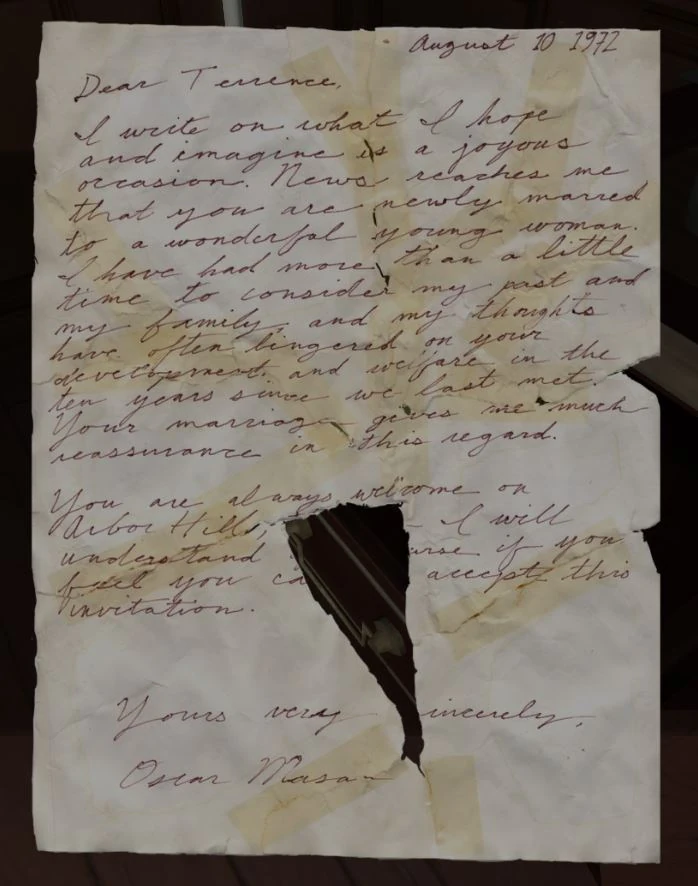 August 10 1972
Dear Terrence,
I write on what I hope
and imagine is a joyous
occasion. News reaches me
that you are newly married
to a wonderful young woman.
I have had more than a little
time to consider my past and
my family, and my thoughts
have often lingered on your
development and welfare in the
ten years since we last met.
Your marriage gives me much
reassurance in this regard.
You are always welcome on
Arbor Hill, I will
understand if you
feel you accept this
invitation.
Yours very incerely,
Oscar Masan